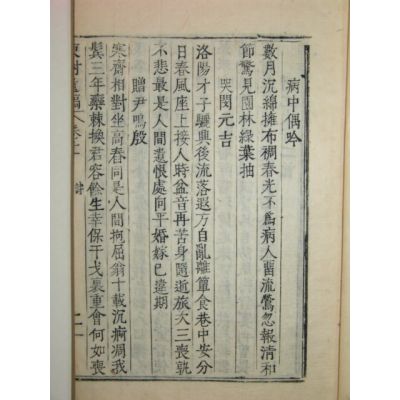 病中偶吟
數月沉綿擁布裯春光不爲病人留流鶯忽報清和
節驚見園林綠葉抽
哭閔元吉
洛陽才子驪興後流落遐方自亂離簞食巷中安分
日春風座上接人時盆音再苦身隨逝旅大三喪孰
不悲最是人間遺恨處向平婚嫁已違期
贈尹鳴殷
寒齋相對坐高舂同是人間抱屈翁十載沉痾凋我
鬂三年欒棘換君容餘生幸保干戈裏重會何如喪
遺稿 卷之一 詩